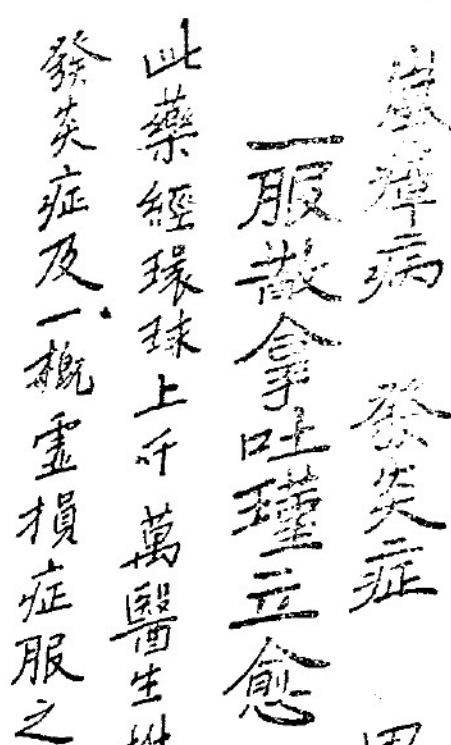 嵐瘴病 發炎症
一服散拿吐瑾立愈
此藥經環球上仟萬醫生
發炎症及一概虛損症服之